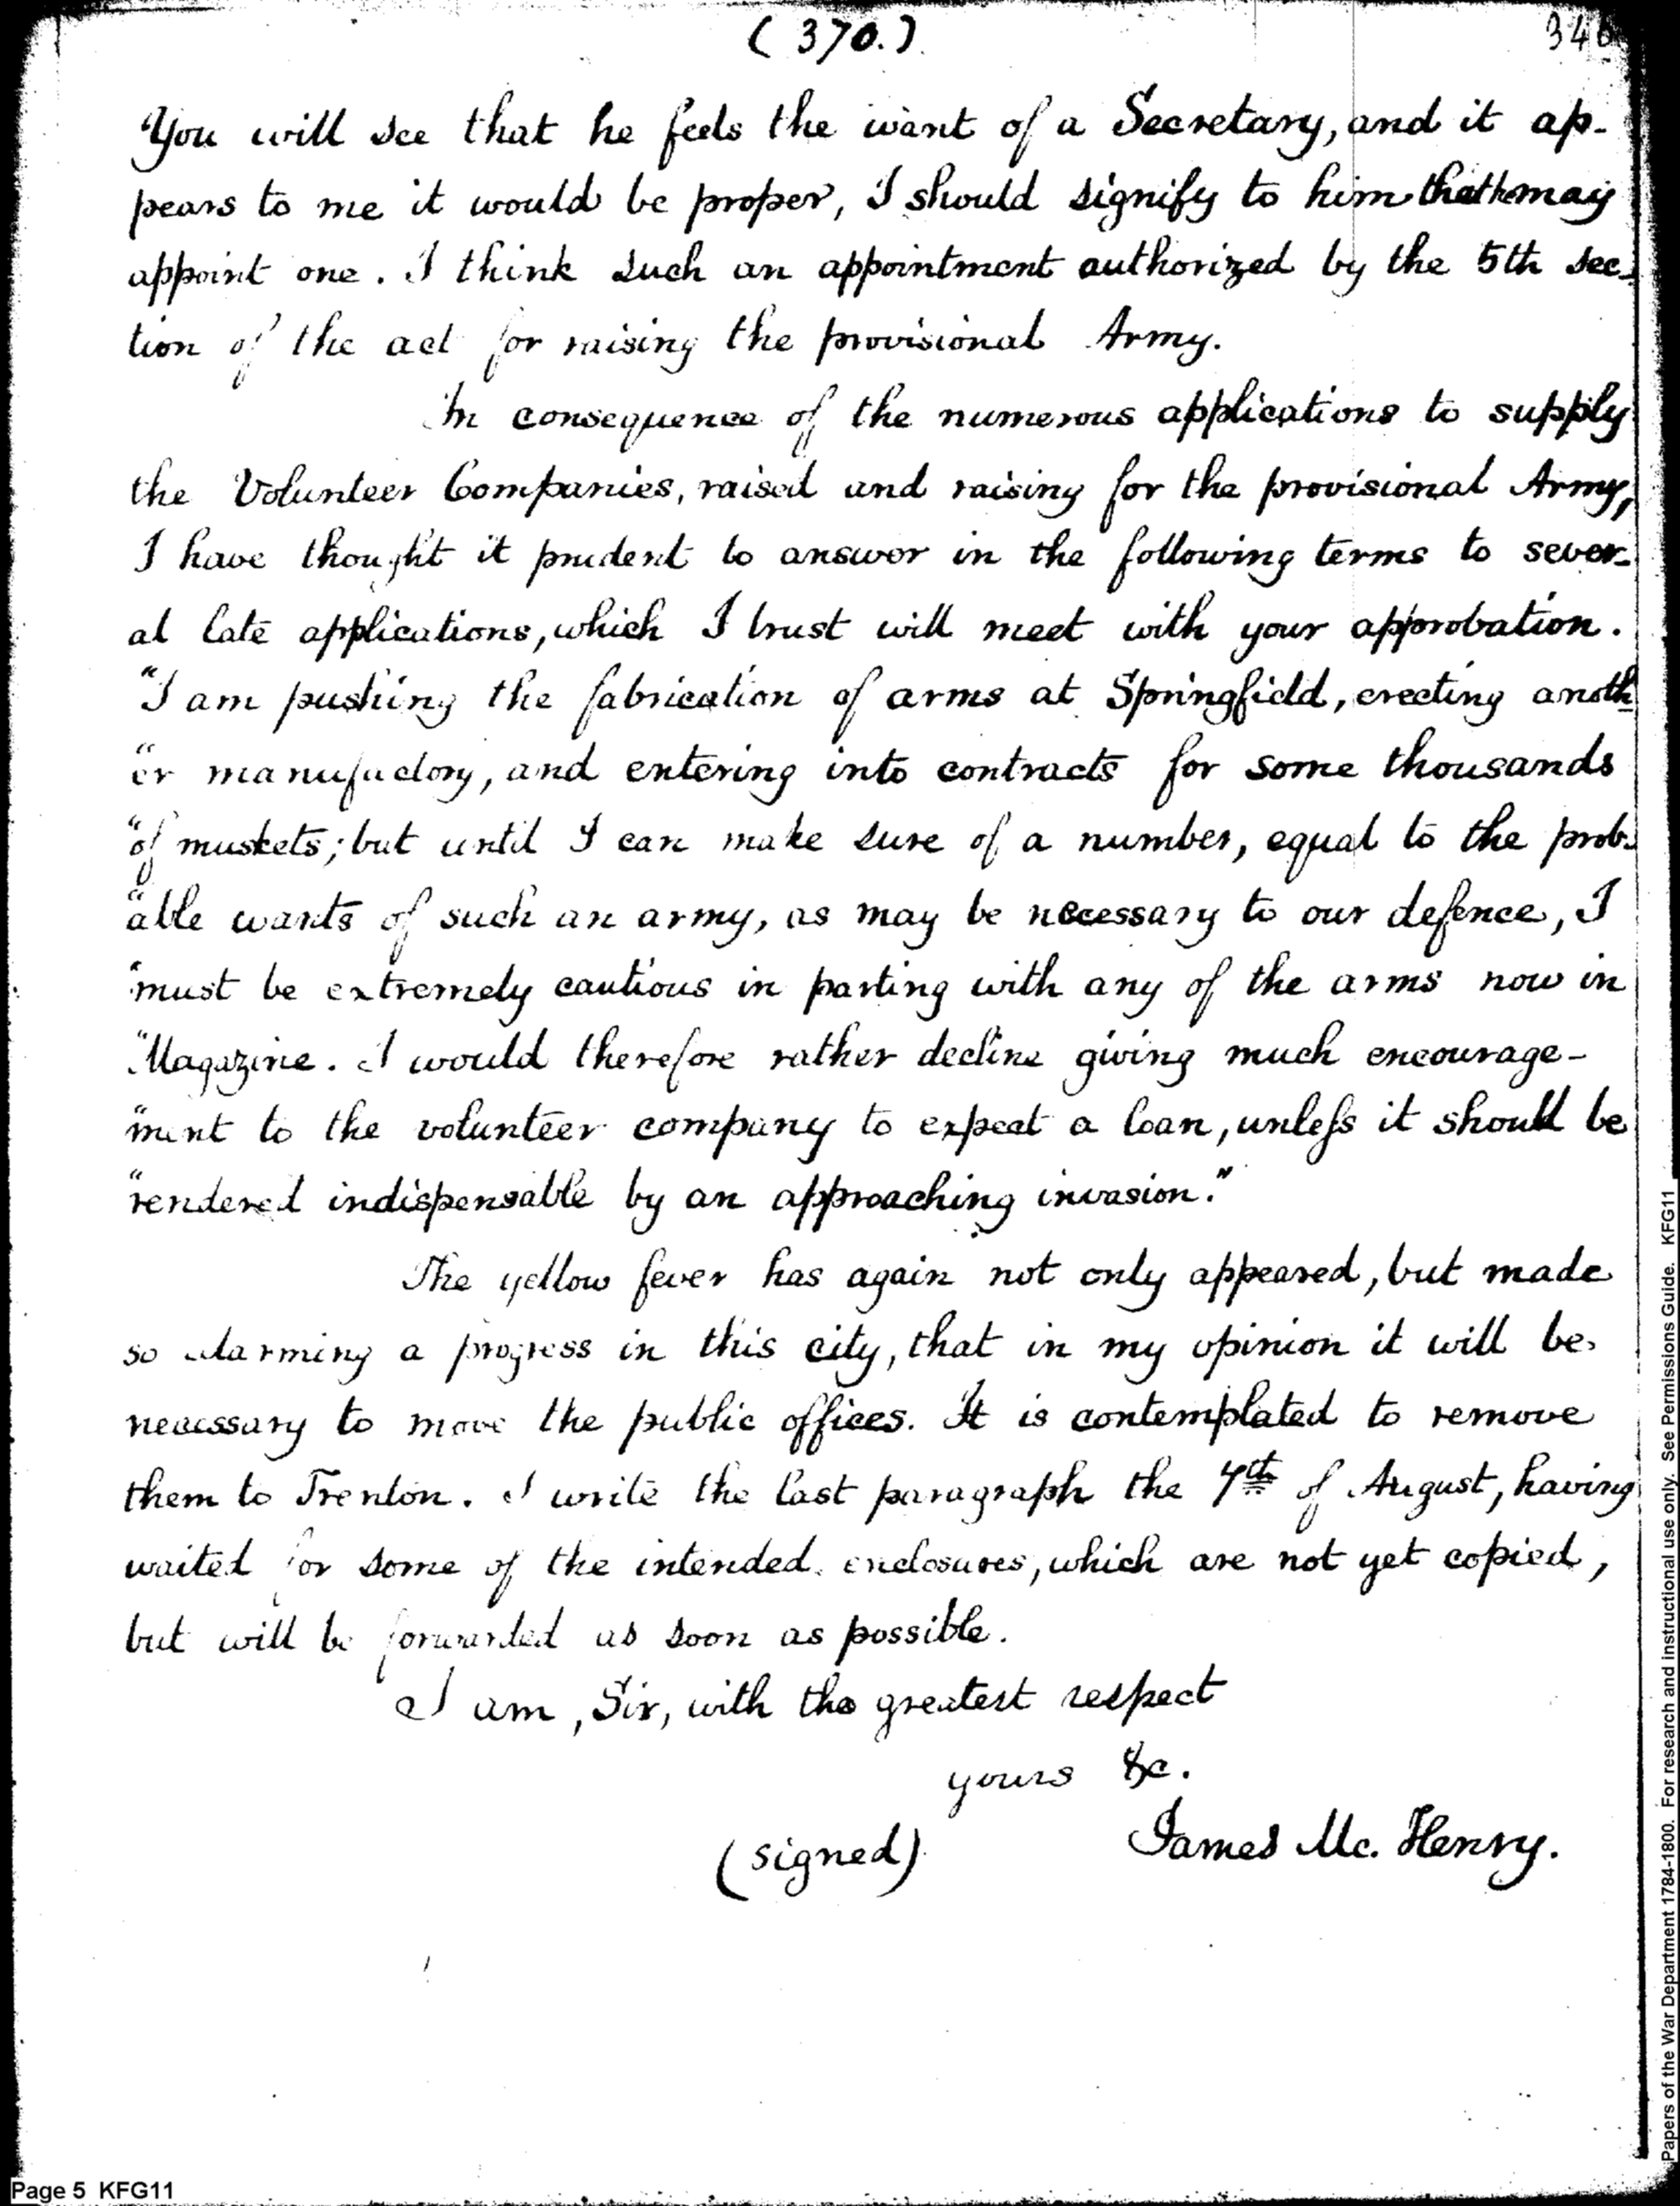 (370.)
346
You will see that he feels the want of a Secretary, and it ap-
pears to me it would be proper, I should signify to him that he may
appoint one. I think such an appointment authorized by the 5th sec-
tion of the act for raising the provisional Army.
In consequence of the numerous applications to supply
the Volunteer Companies, raised and raising for the provisional Army,
I have thought it prudent to answer in the following terms to sever-
al late applications, which I trust will meet with your approbation.
"I am pushing the fabrication of arms at Springfield, erecting anoth
"er manufactory, and entering into contracts for some thousands
"of muskets; but until I can make sure of a number, equal to the prob-
"able wants of such an army, as may be necessary to our defence, I
"must be extremely cautious in parting with any of the arms now in
"Magazine. I would therefore rather decline giving much encourage-
"ment to the volunteer company to expect a loan, unless it should be
"rendered indispensable by an approaching invasion."
The yellow fever has again not only appeared, but made
so alarming a progress in this city, that in my opinion it will be
necessary to move the public offices. It is contemplated to remove
them to Trenton. I write the last paragraph the 7th of August, having
waited for some of the intended enclosures, which are not yet copied,
but will be forwarded as soon as possible.
I am, Sir, with the greatest respect
yours &c.
(signed) James Mc. Henry.
Papers of the War Department 1784-1800. For research and instructional use only. See Permissions Guide. KFG11
Page 5 KFG11